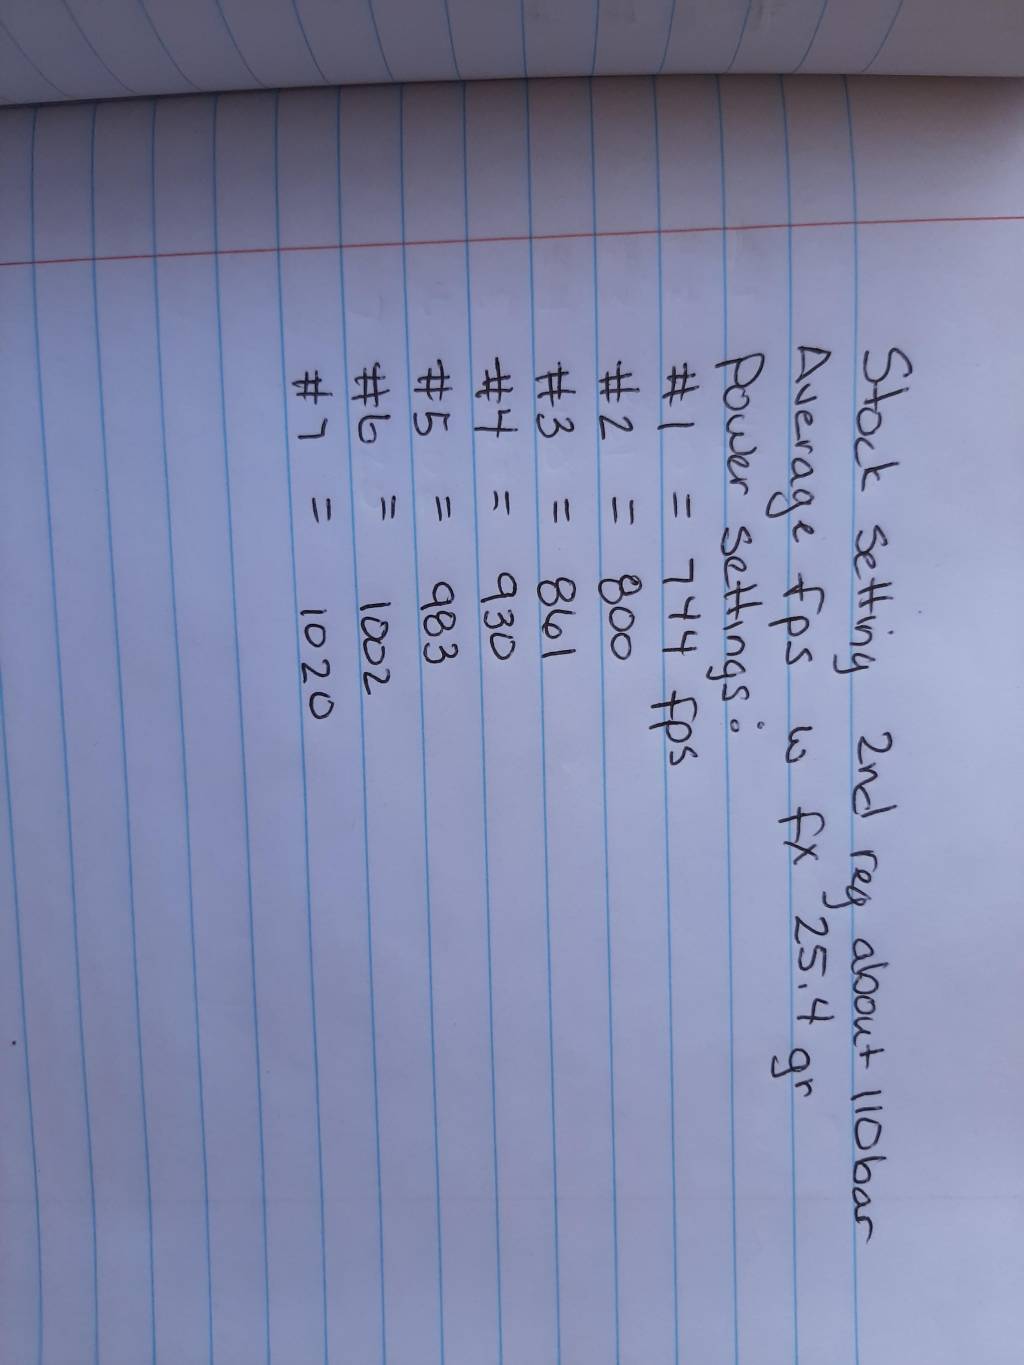 Stock setting 2nd reg about 110bar
Average fps w fx 25.4 gr
Power settings:
#1 = 744 fps
#2 = 800
#3 = 861
#4 = 930
#5 = 983
#6 = 1002
#7 = 1020